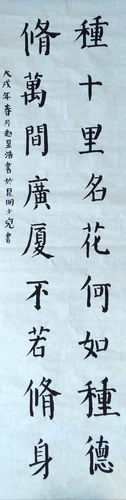 種十里名花何如種德
脩萬間廣厦不若脩身
戊戌年春月赵呈浩書於昆明少兒書